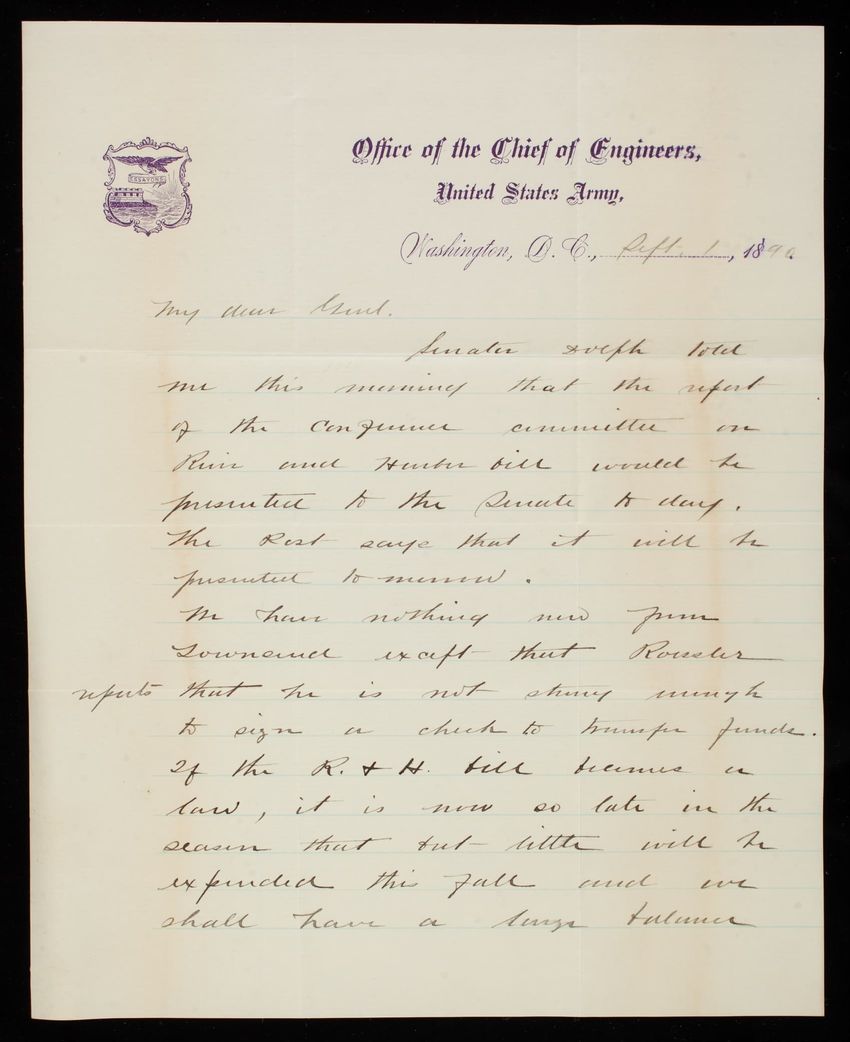 ESSAYONS
Office of the Chief of Engineers,
United States Army,
Washington, D. C., Sept. 1, 1890.
My dear Genl.
Senator Dolph told
me this morning that the report
of the Conference committee on
River and Harbor bill would be
presented to the Senate to day.
The Post says that it will be
presented to-morrow.
We have nothing new from
Townsend except that Roessler
reports that he is not strong enough
to sign a check to transfer funds.
If the R. & H. bill becomes a
law, it is now so late in the
season that but little will be
expended this Fall and we
shall have a large balance